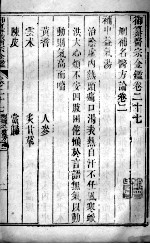 御纂醫宗金鑑卷二十七
刪補名醫方論卷二
補中益氣湯
治陰虛内熱頭痛口渴表熱自汗不任風寒脉
洪大心煩不安四肢困倦懶於言語無氣以動
動則氣高而喘
黃耆　人參
雲朮　炙甘草
陳皮　當歸